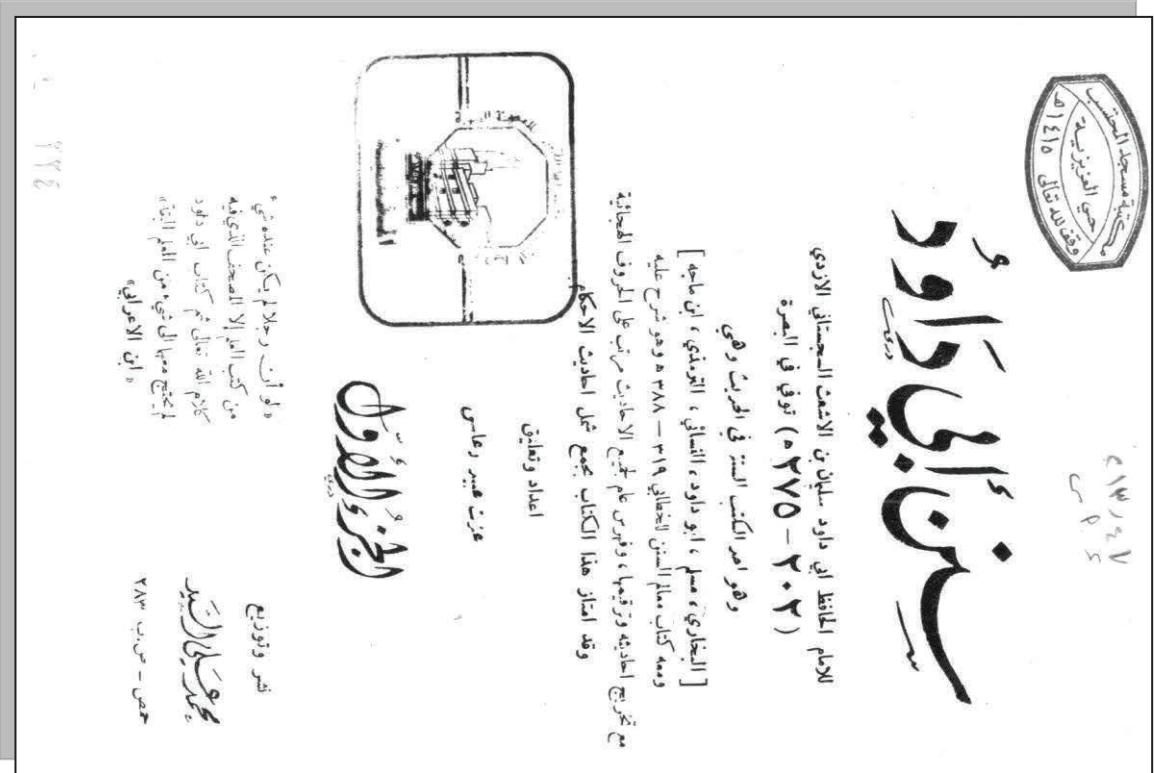 مكتبة مسجد المحتسب
حي العزيزية
وقف لله تعالى
١٤١٥هـ
٢١٣,٤٧
س د
سنن أبي داود
للامام الحافظ ابي داود سليمان بن الاشعث السجستاني الازدي
( ٢٠٢ – ٢٧٥ ه ) توفي في البصرة
وهو احد الكتب الستة في الحديث وهي
[ البخاري ، مسلم ، ابو داود ، النسائي ، الترمذي ، ابن ماجه ]
ومعه كتاب معالم السنن للخطابي ٣١٩ – ٣٨٨ ه وهو شرح عليه
مع تخريج احاديثه وترقيمها ، وفهرس عام لجميع الاحاديث مرتب على الحروف الهجائية
وقد امتاز هذا الكتاب بجمع شمل احاديث الاحكام
اعداد وتعليق
عزت عبيد دعاس
الجزء الأول
نشر وتوزيع
محمد علي السيد
حمص – ص.ب ٢٨٣
« لو أن رجلا لم يكن عنده شيء
من كتب العلم إلا المصحف الذي فيه
كلام الله تعالى ثم كتاب ابي داود
لم يحتج معها الى شيء من العلم البتة »
« ابن الاعرابي »
٢٢٤